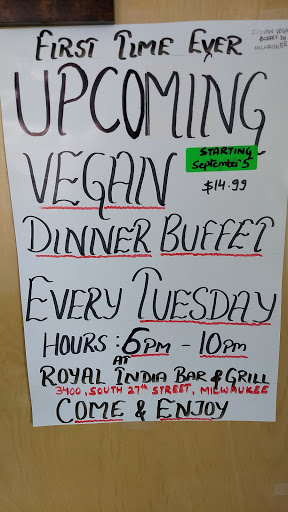 FIRST TIME EVER
UPCOMING
VEGAN
STARTING
September 5
$14.99
DINNER BUFFET
EVERY TUESDAY
HOURS : 6PM - 10PM
AT
ROYAL INDIA BAR & GRILL
3400, SOUTH 27TH STREET, MILWAUKEE
COME & ENJOY